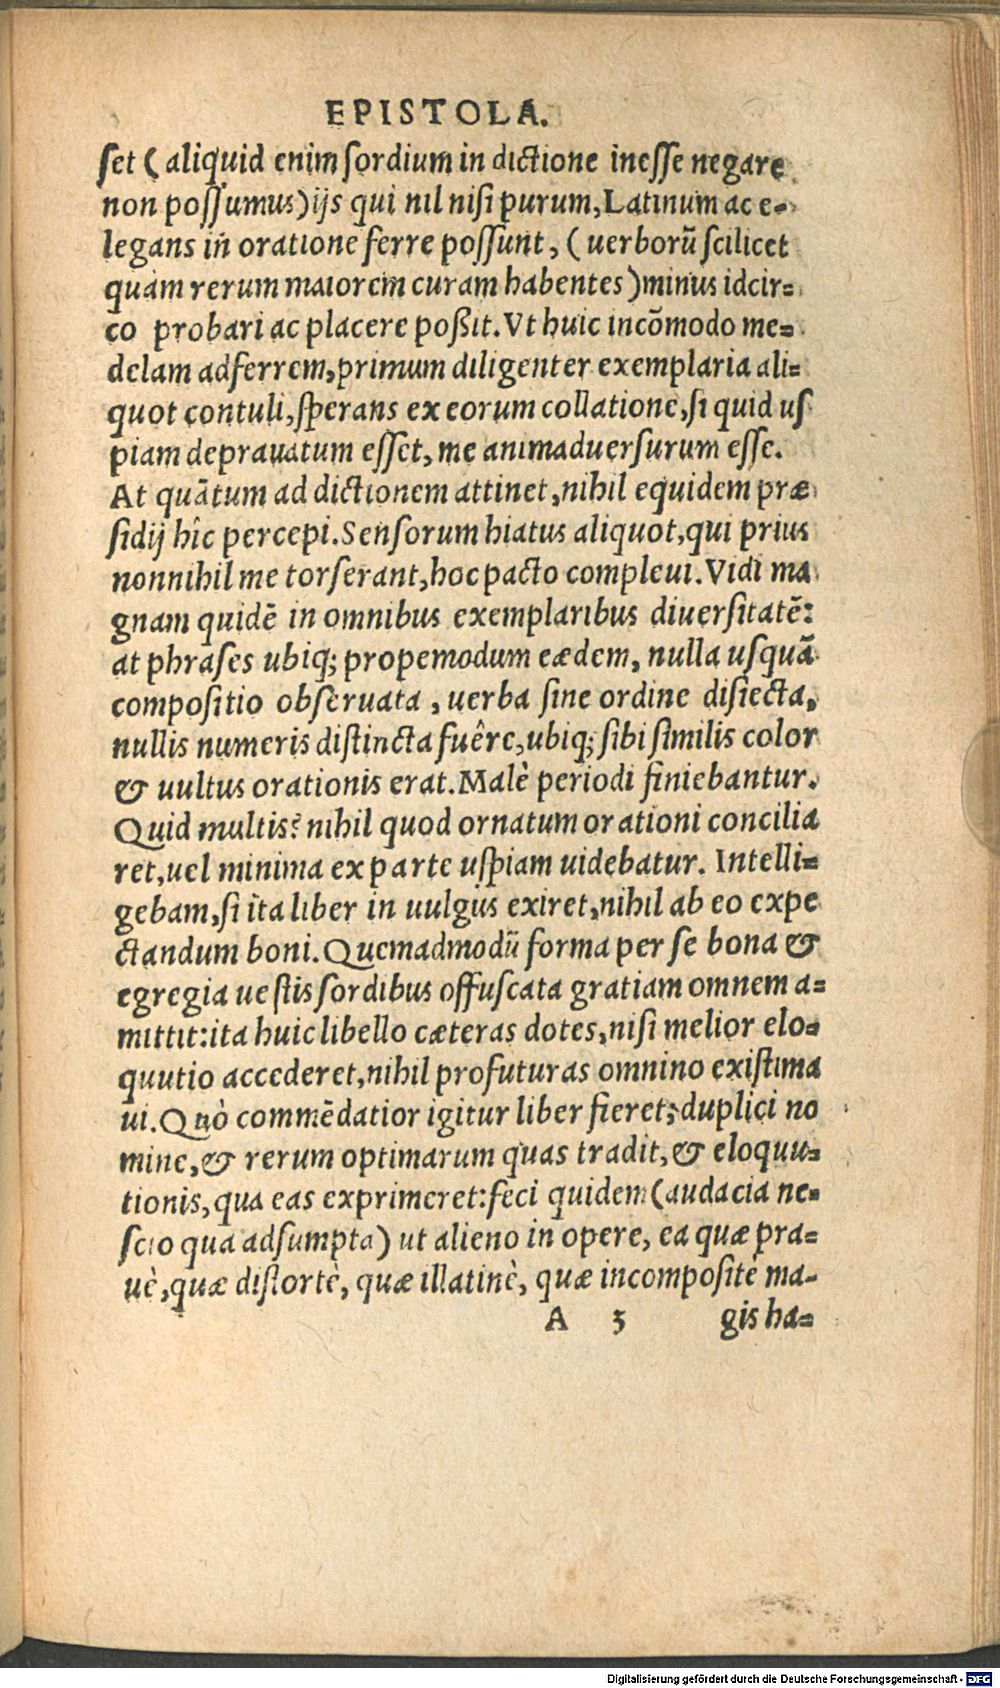 EPISTOLA.
set ( aliquid enim sordium in dictione inesse negare
non possumus) ijs qui nil nisi purum, Latinum ac e-
legans in oratione ferre possunt, ( uerborũ scilicet
quàm rerum maiorem curam habentes ) minus idcir=
co probari ac placere poßit. Vt huic incõmodo me=
delam adferrem, primum diligenter exemplaria ali=
quot contuli, sperans ex eorum collatione, si quid us
piam deprauatum esset, me animaduersurum esse.
At quãtum ad dictionem attinet, nihil equidem præ
sidij hîc percepi. Sensorum hiatus aliquot, qui prius
nonnihil me torserant, hoc pacto compleui. Vidi ma
gnam quidẽ in omnibus exemplaribus diuersitatẽ:
at phrases ubiq; propemodum eædem, nulla usquã
compositio obseruata, uerba sine ordine disiecta,
nullis numeris distincta fuêre, ubiq; sibi similis color
& uultus orationis erat. Malè periodi finiebantur.
Quid multis? nihil quod ornatum orationi concilia
ret, uel minima ex parte uspiam uidebatur. Intelli=
gebam, si ita liber in uulgus exiret, nihil ab eo expe
ctandum boni. Quemadmodũ forma per se bona &
egregia uestis sordibus offuscata gratiam omnem a=
mittit: ita huic libello cæteras dotes, nisi melior elo=
quutio accederet, nihil profuturas omnino existima
ui. Quò commẽdatior igitur liber fieret; duplici no
mine, & rerum optimarum quas tradit, & eloquu=
tionis, qua eas exprimeret: feci quidem (audacia ne=
scio qua adsumpta) ut alieno in opere, ea quæ pra=
uè, quæ distortè, quæ illatinè, quæ incompositè ma-
A 3 gis ha=
Digitalisierung gefördert durch die Deutsche Forschungsgemeinschaft - DFG